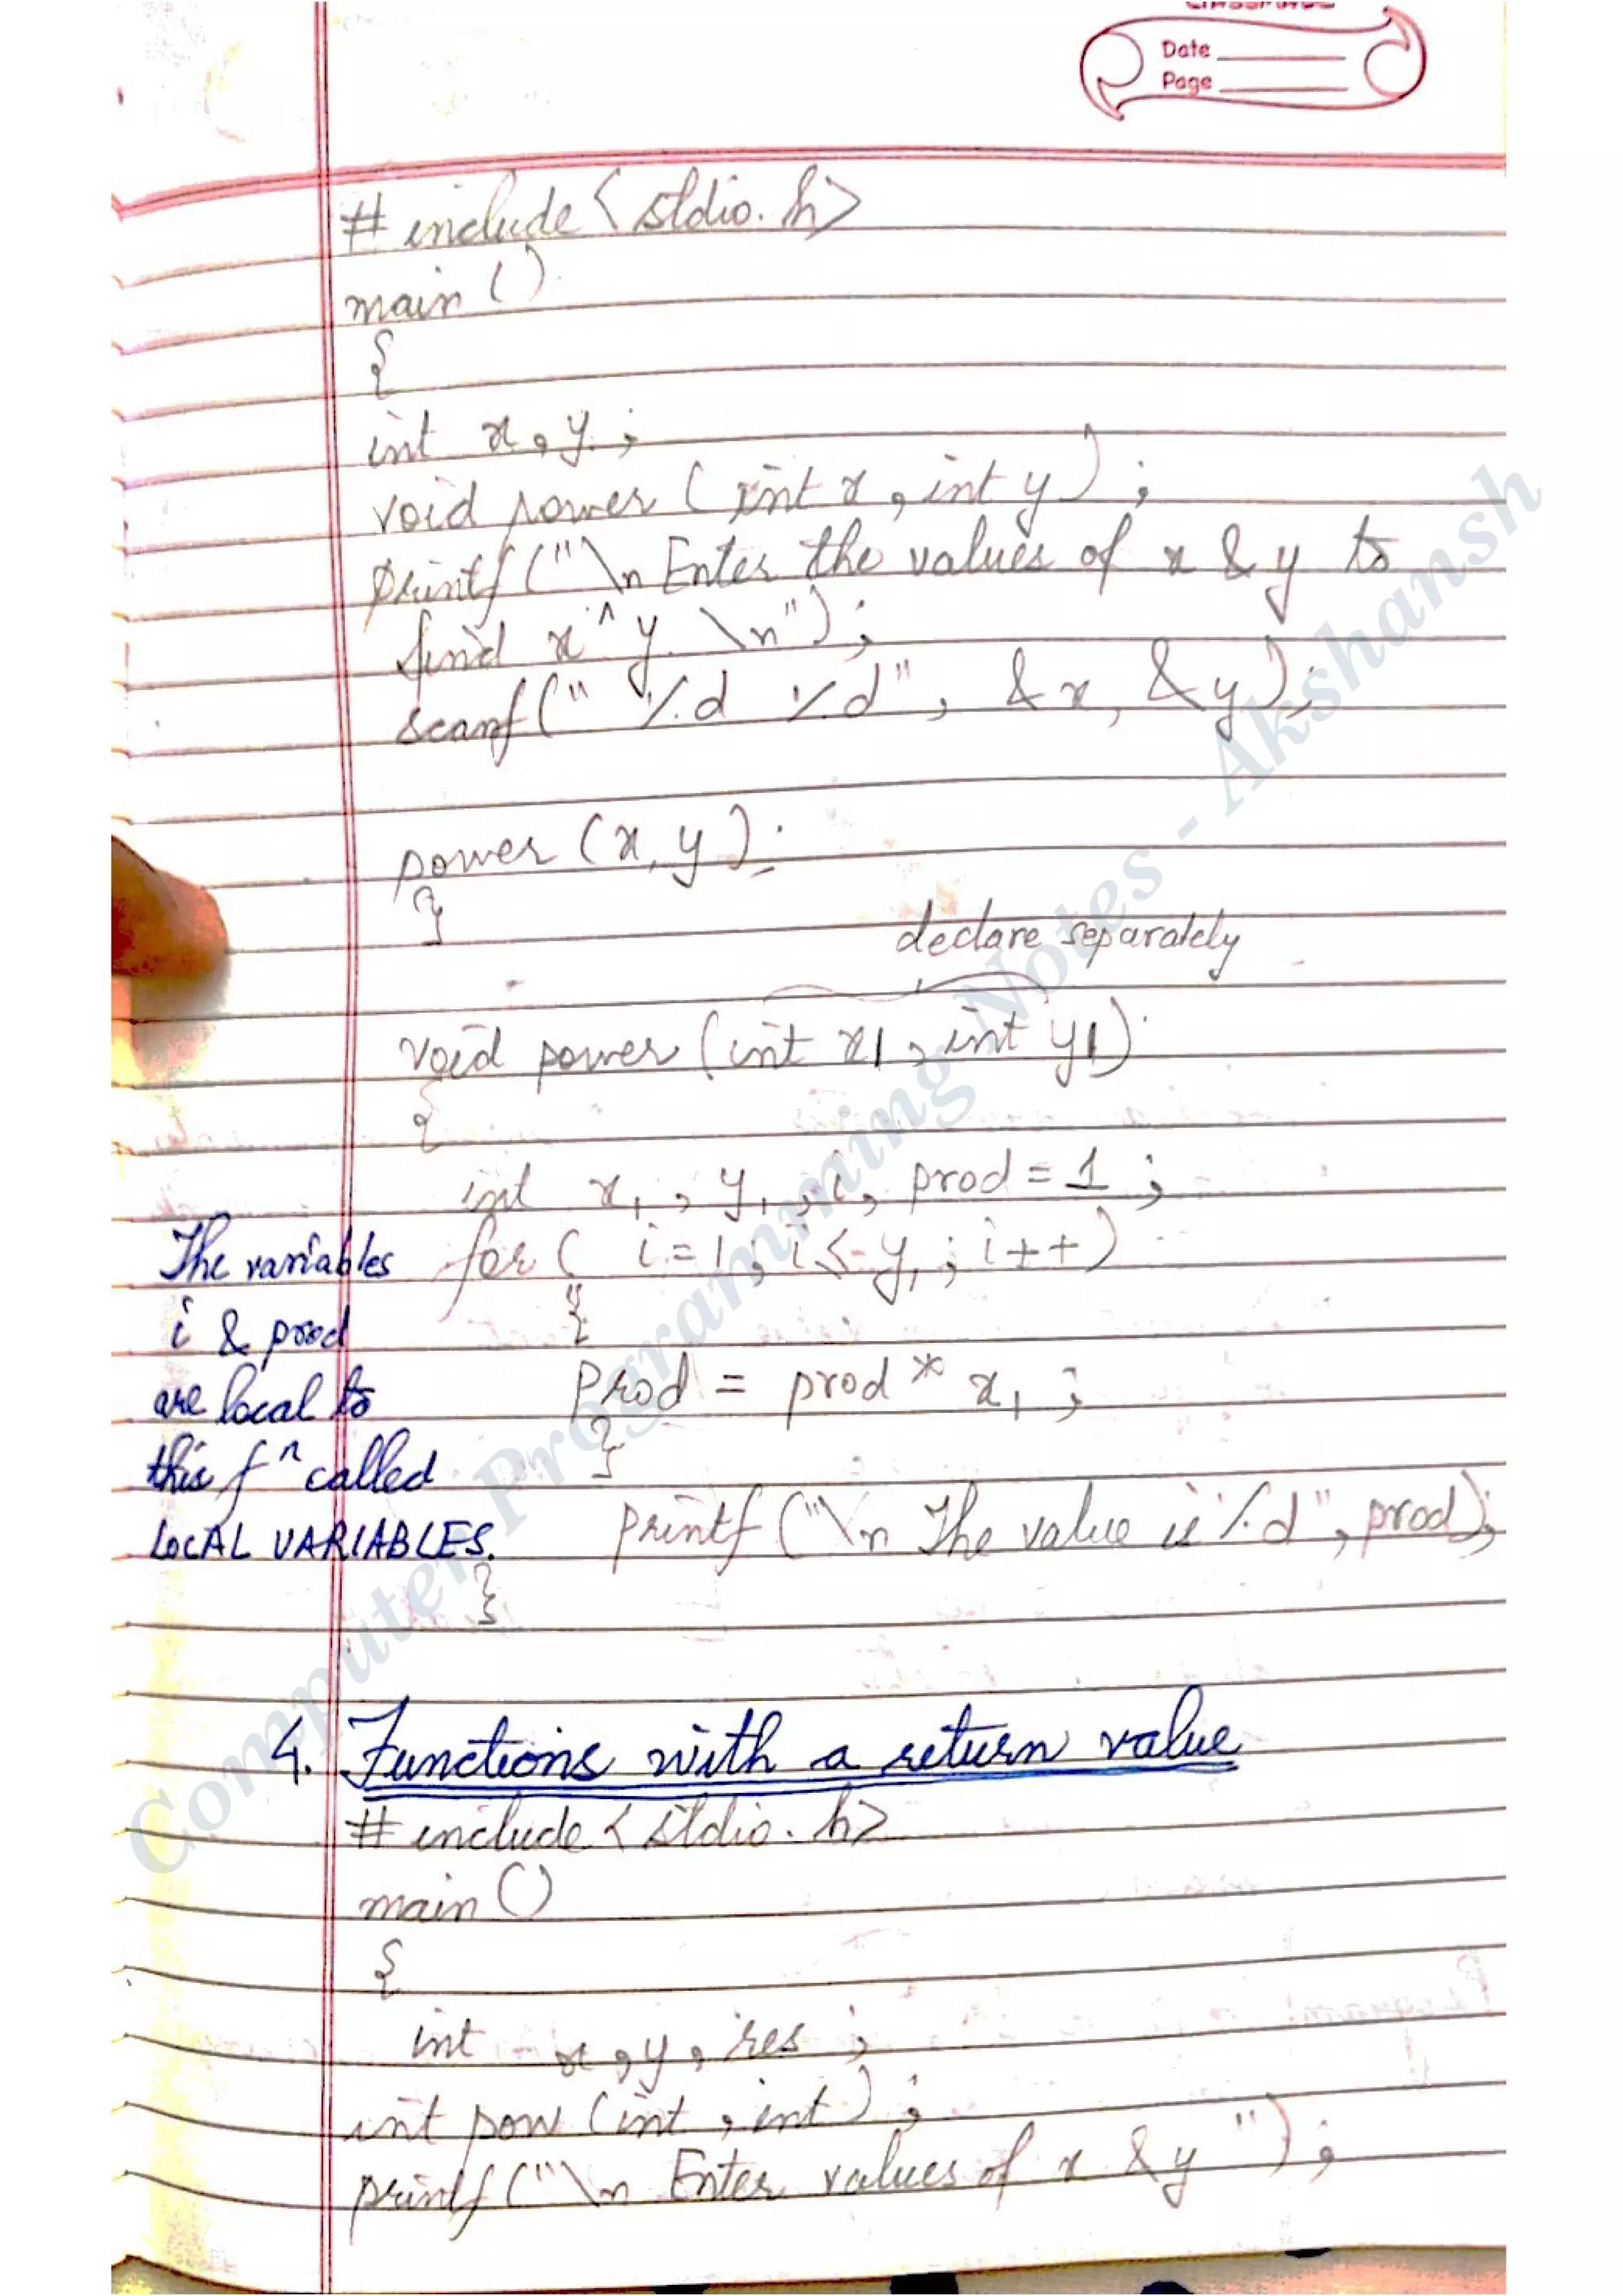 Date
Page
# include <stdio.h>
main ()
{
int x, y ;
void power (int x, int y) ;
printf ("\n Enter the values of x & y to
find x^y \n") ;
scanf (" %d %d", &x, &y) ;
power (x, y) ;
}
declare separately
void power (int x1, int y1)
{
int x1, y1, i, prod = 1 ;
for ( i = 1 ; i <= y1 ; i++ )
{
Prod = prod * x1 ;
}
printf ("\n The value is %d", prod) ;
}
The variables
i & prod
are local to
this fn called
LOCAL VARIABLES.
4. Functions with a return value
# include <stdio.h>
main ()
{
int x, y, res ;
int pow (int, int) ;
printf ("\n Enter values of x & y ") ;
Computer Programming Notes - Akshansh